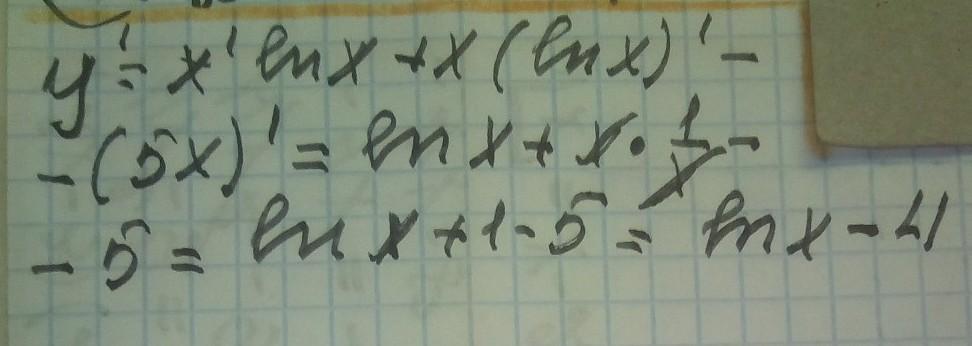 y' = x' ln x + x (ln x)' -
- (5x)' = ln x + x · 1/x -
- 5 = ln x + 1 - 5 = ln x - 4